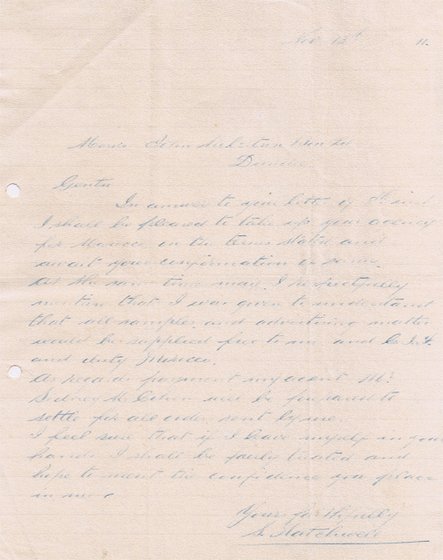 Nov 13th 11.
Messrs John
Dundee
Gents
In answer to your letter of 8th inst
I shall be pleased to take up your agency
for Morocco on the terms stated and
await your confirmation of same.
At the same time may I
mention that I was given to understand
that all samples and advertising matter
would be supplied free to me and C.I.F.
and duty Morocco.
As regards payment my agent Mr
will be prepared to
settle for all orders sent by me
I feel sure that if I leave myself in your
hands I shall be fairly treated and
hope to merit the confidence you place
in me
Yours
S.